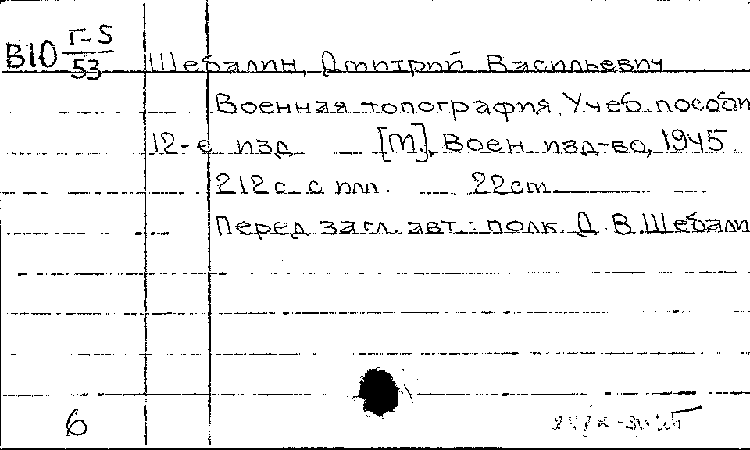 В10 Г-5/53
Шебалин, Дмитрий Васильевич
Военная топография. Учеб. пособи
12-е изд. [М.], Воен. изд-во, 1945.
212 с. с илл. 22 cm.
Перед загл. авт.: полк. Д. В. Шебали
6